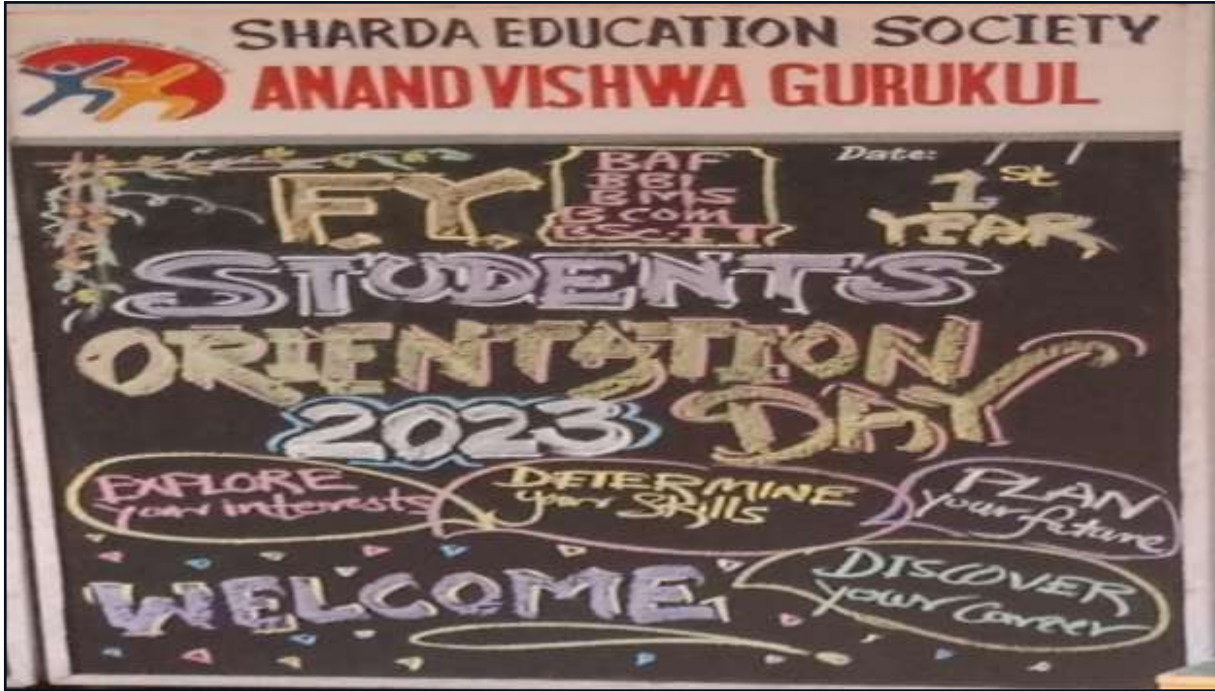 SHARDA EDUCATION SOCIETY
ANAND VISHWA GURUKUL
Date: / /
F.Y.
BAF
BBI
BMS
B.COM
BSC.IT
1st
YEAR
STUDENTS
ORIENTATION
2023 DAY
EXPLORE
your interests
DETERMINE
your Skills
PLAN
your future
WELCOME
DISCOVER
your Career